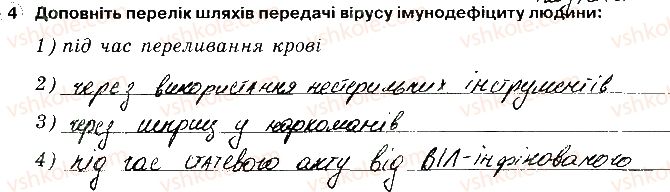 4 Доповніть перелік шляхів передачі вірусу імунодефіциту людини:
1) під час переливання крові
2) через використання нестерильних інструментів
3) через шприц у наркоманів
4) під час статевого акту від ВІЛ-інфінованого